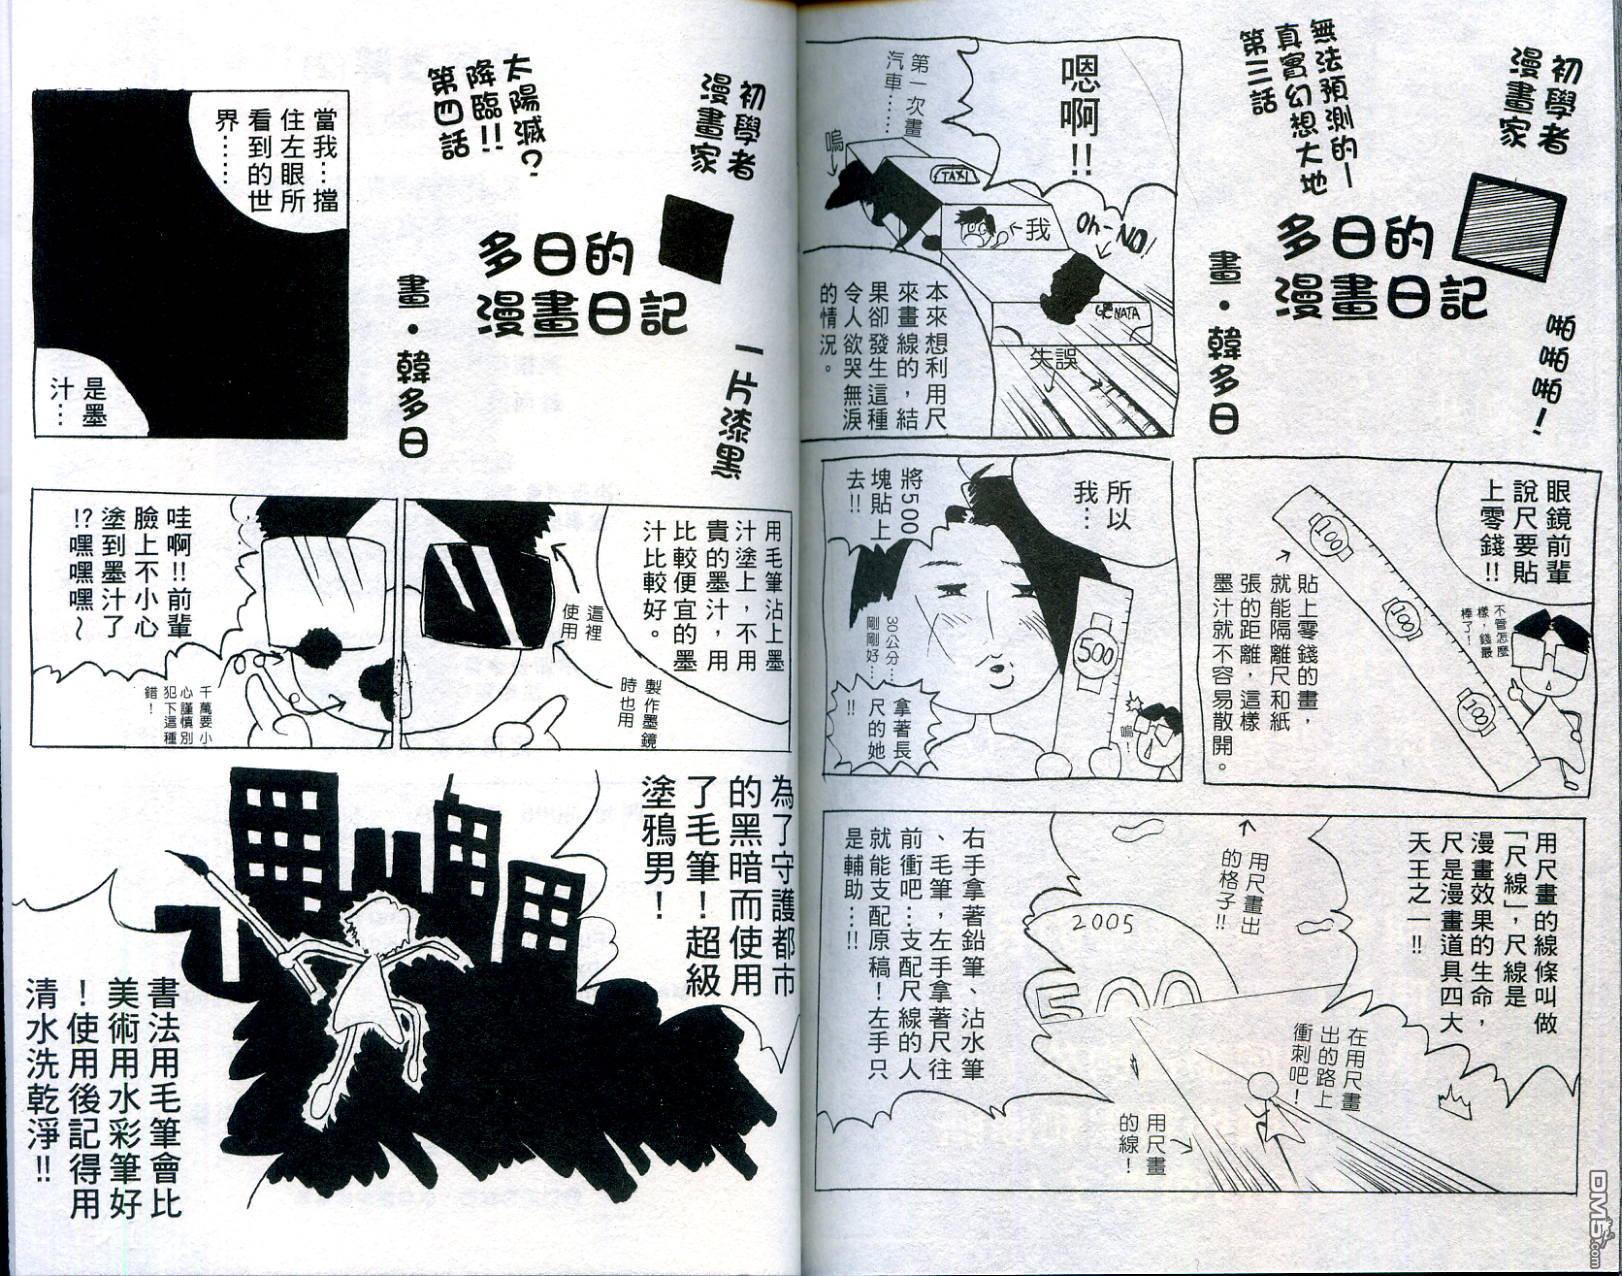 初學者
漫畫家
無法預測的一
真實幻想大地
第三話
多日的
漫畫日記
畫・韓多日
啪啪啪！
嗯啊!!
第一次畫
汽車……
嗚
TAXI
我
Oh-NO!
GENATA
失誤
本來想利用尺
來畫線的，結
果卻發生這種
令人欲哭無淚
的情況。
眼鏡前輩
說尺要貼
上零錢!!
不管怎麼
樣，錢最
棒了！
100
100
100
貼上零錢的畫，
就能隔離尺和紙
張的距離，這樣
墨汁就不容易散開。
所以
我…
將500
塊貼上
去!!
500
30公分…
剛剛好…
嗚！
拿著長
尺的她
!!
用尺畫的線條叫做
「尺線」，尺線是
漫畫效果的生命，
尺是漫畫道具四大
天王之一!!
用尺畫出
的格子!!
2005
在用尺畫
出的路上
衝刺吧！
用尺畫
的線！
右手拿著鉛筆、沾水筆
、毛筆，左手拿著尺往
前衝吧…支配尺線的人
就能支配原稿！左手只
是輔助…!!
初學者
漫畫家
太陽滅？
降臨!!
第四話
多日的
漫畫日記
畫・韓多日
一片漆黑
當我…擋
住左眼所
看到的世
界……
是墨
汁…
用毛筆沾上墨
汁塗上，不用
貴的墨汁，用
比較便宜的墨
汁比較好。
這裡
使用
製作墨鏡
時也用
哇啊!!前輩
臉上不小心
塗到墨汁了
!?嘿嘿嘿～
千萬要小
心謹慎別
犯下這種
錯！
為了守護都市
的黑暗而使用
了毛筆！超級
塗鴉男！
書法用毛筆會比
美術用水彩筆好
！使用後記得用
清水洗乾淨!!
DM5.com